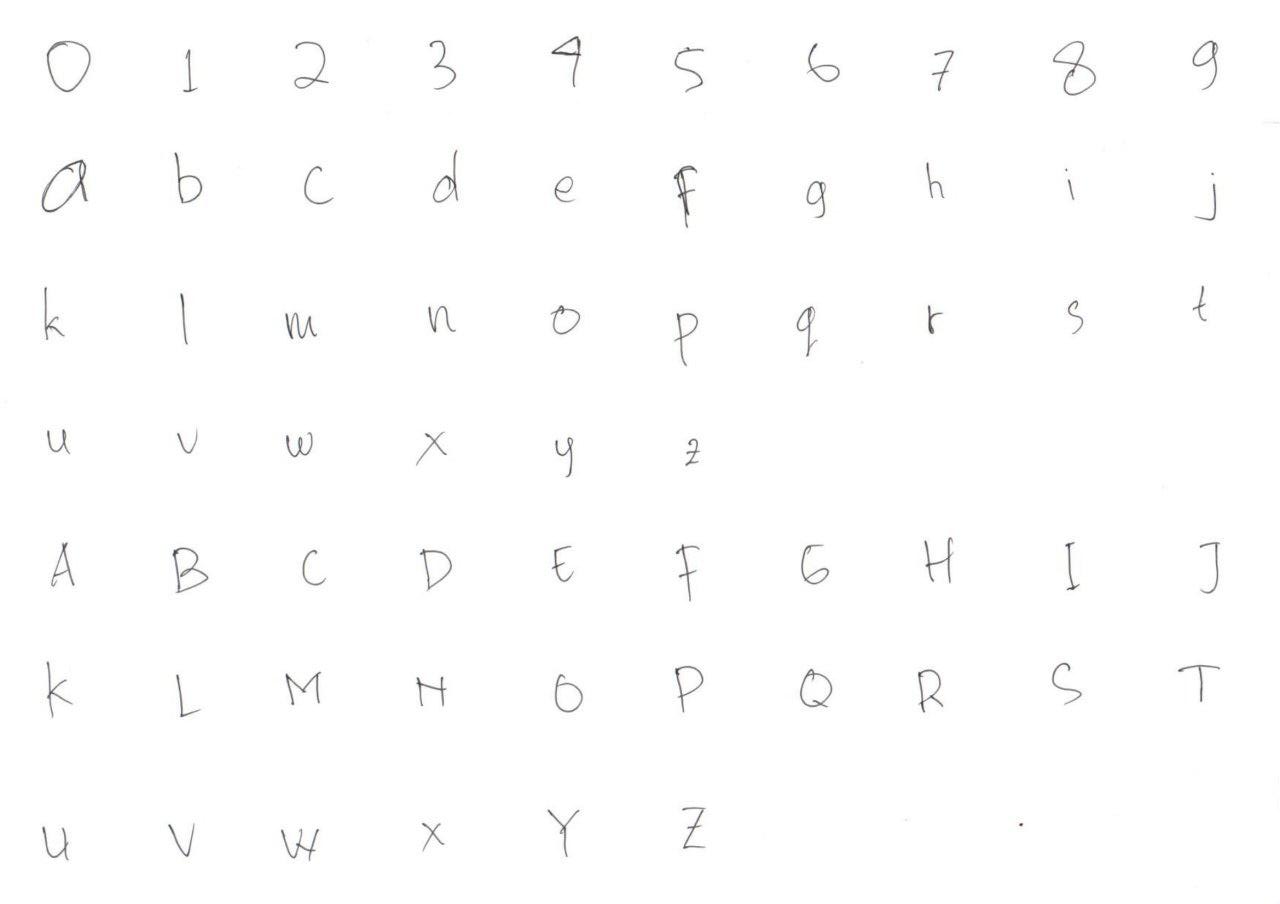 0 1 2 3 4 5 6 7 8 9
a b c d e f g h i j
k l m n o p q r s t
u v w x y z
A B C D E F G H I J
K L M N O P Q R S T
U V W X Y Z